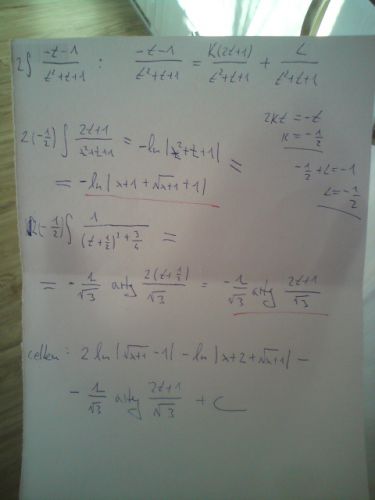 2∫ (-t-1)/(t²+t+1) : (-t-1)/(t²+t+1) = K(2t+1)/(t²+t+1) + L/(t²+t+1)
2Kt = -t
K = -1/2
-1/2 + L = -1
L = -1/2
2(-1/2) ∫ (2t+1)/(t²+t+1) = -ln|t²+t+1| =
= -ln|x+1+√(x+1)+1|
2(-1/2) ∫ 1/((t+1/2)²+3/4) =
= -1/√3 arctg 2(t+1/2)/√3 = -1/√3 arctg (2t+1)/√3
celkem: 2 ln|√(x+1) -1| - ln|x+2+√(x+1)| -
- 1/√3 arctg (2t+1)/√3 + C